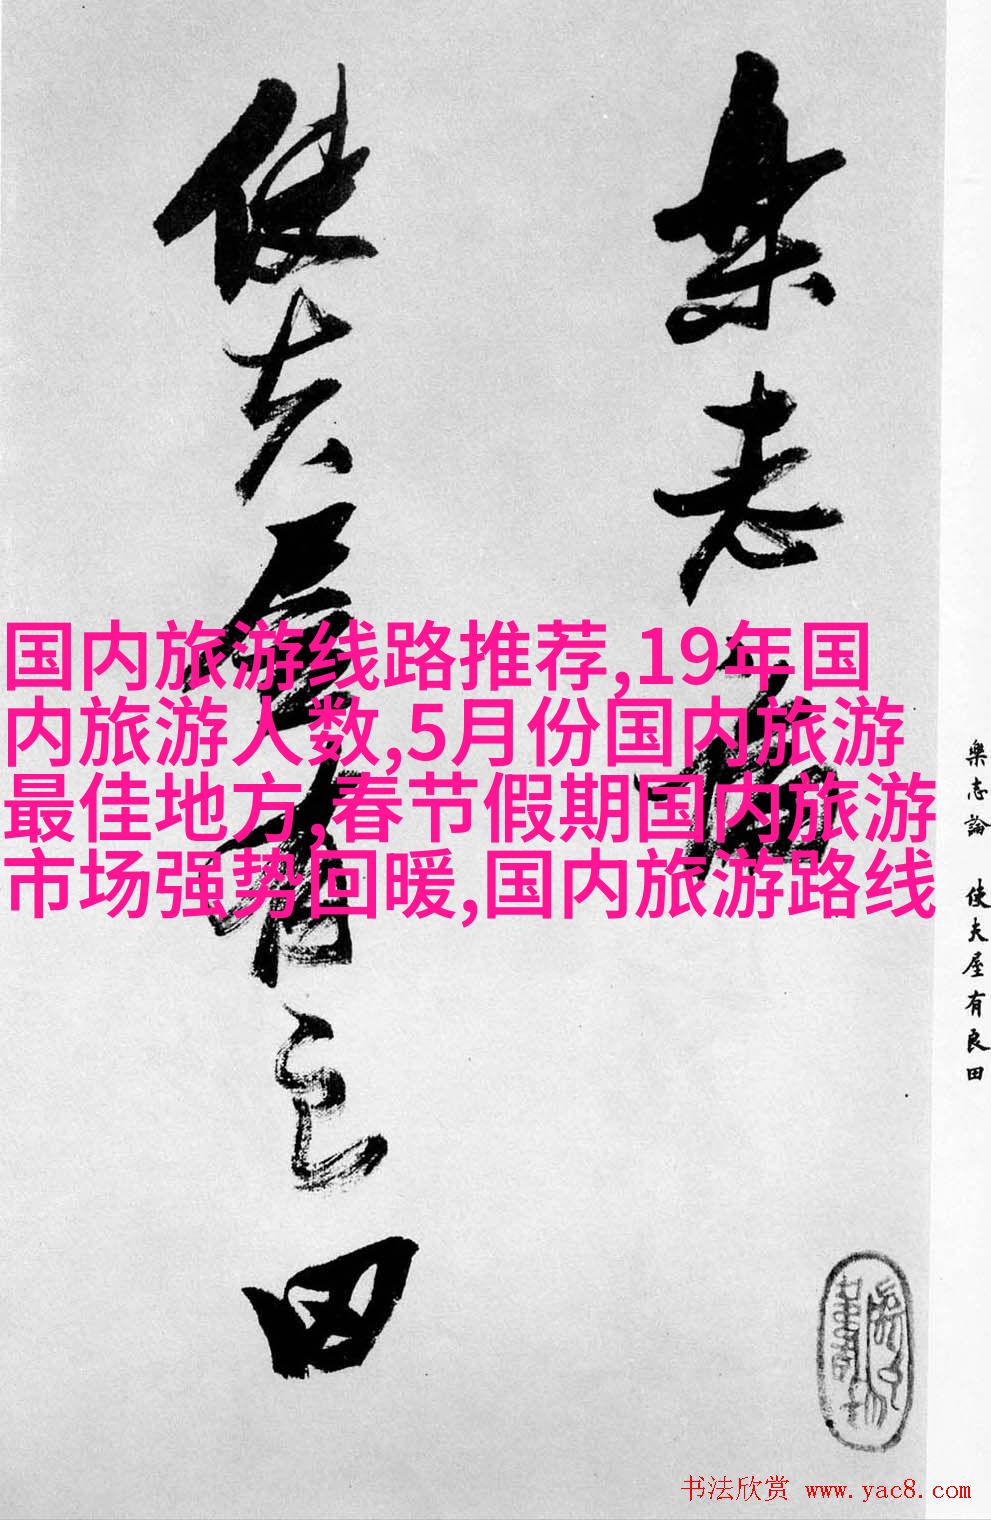 樂志論
使夫屋有良田
国内旅游线路推荐,19年国
内旅游人数,5月份国内旅游
最佳地方,春节假期国内旅游
市场强势回暖,国内旅游路线
樂志論 使夫屋有良田
书法欣赏 www.yac8.com